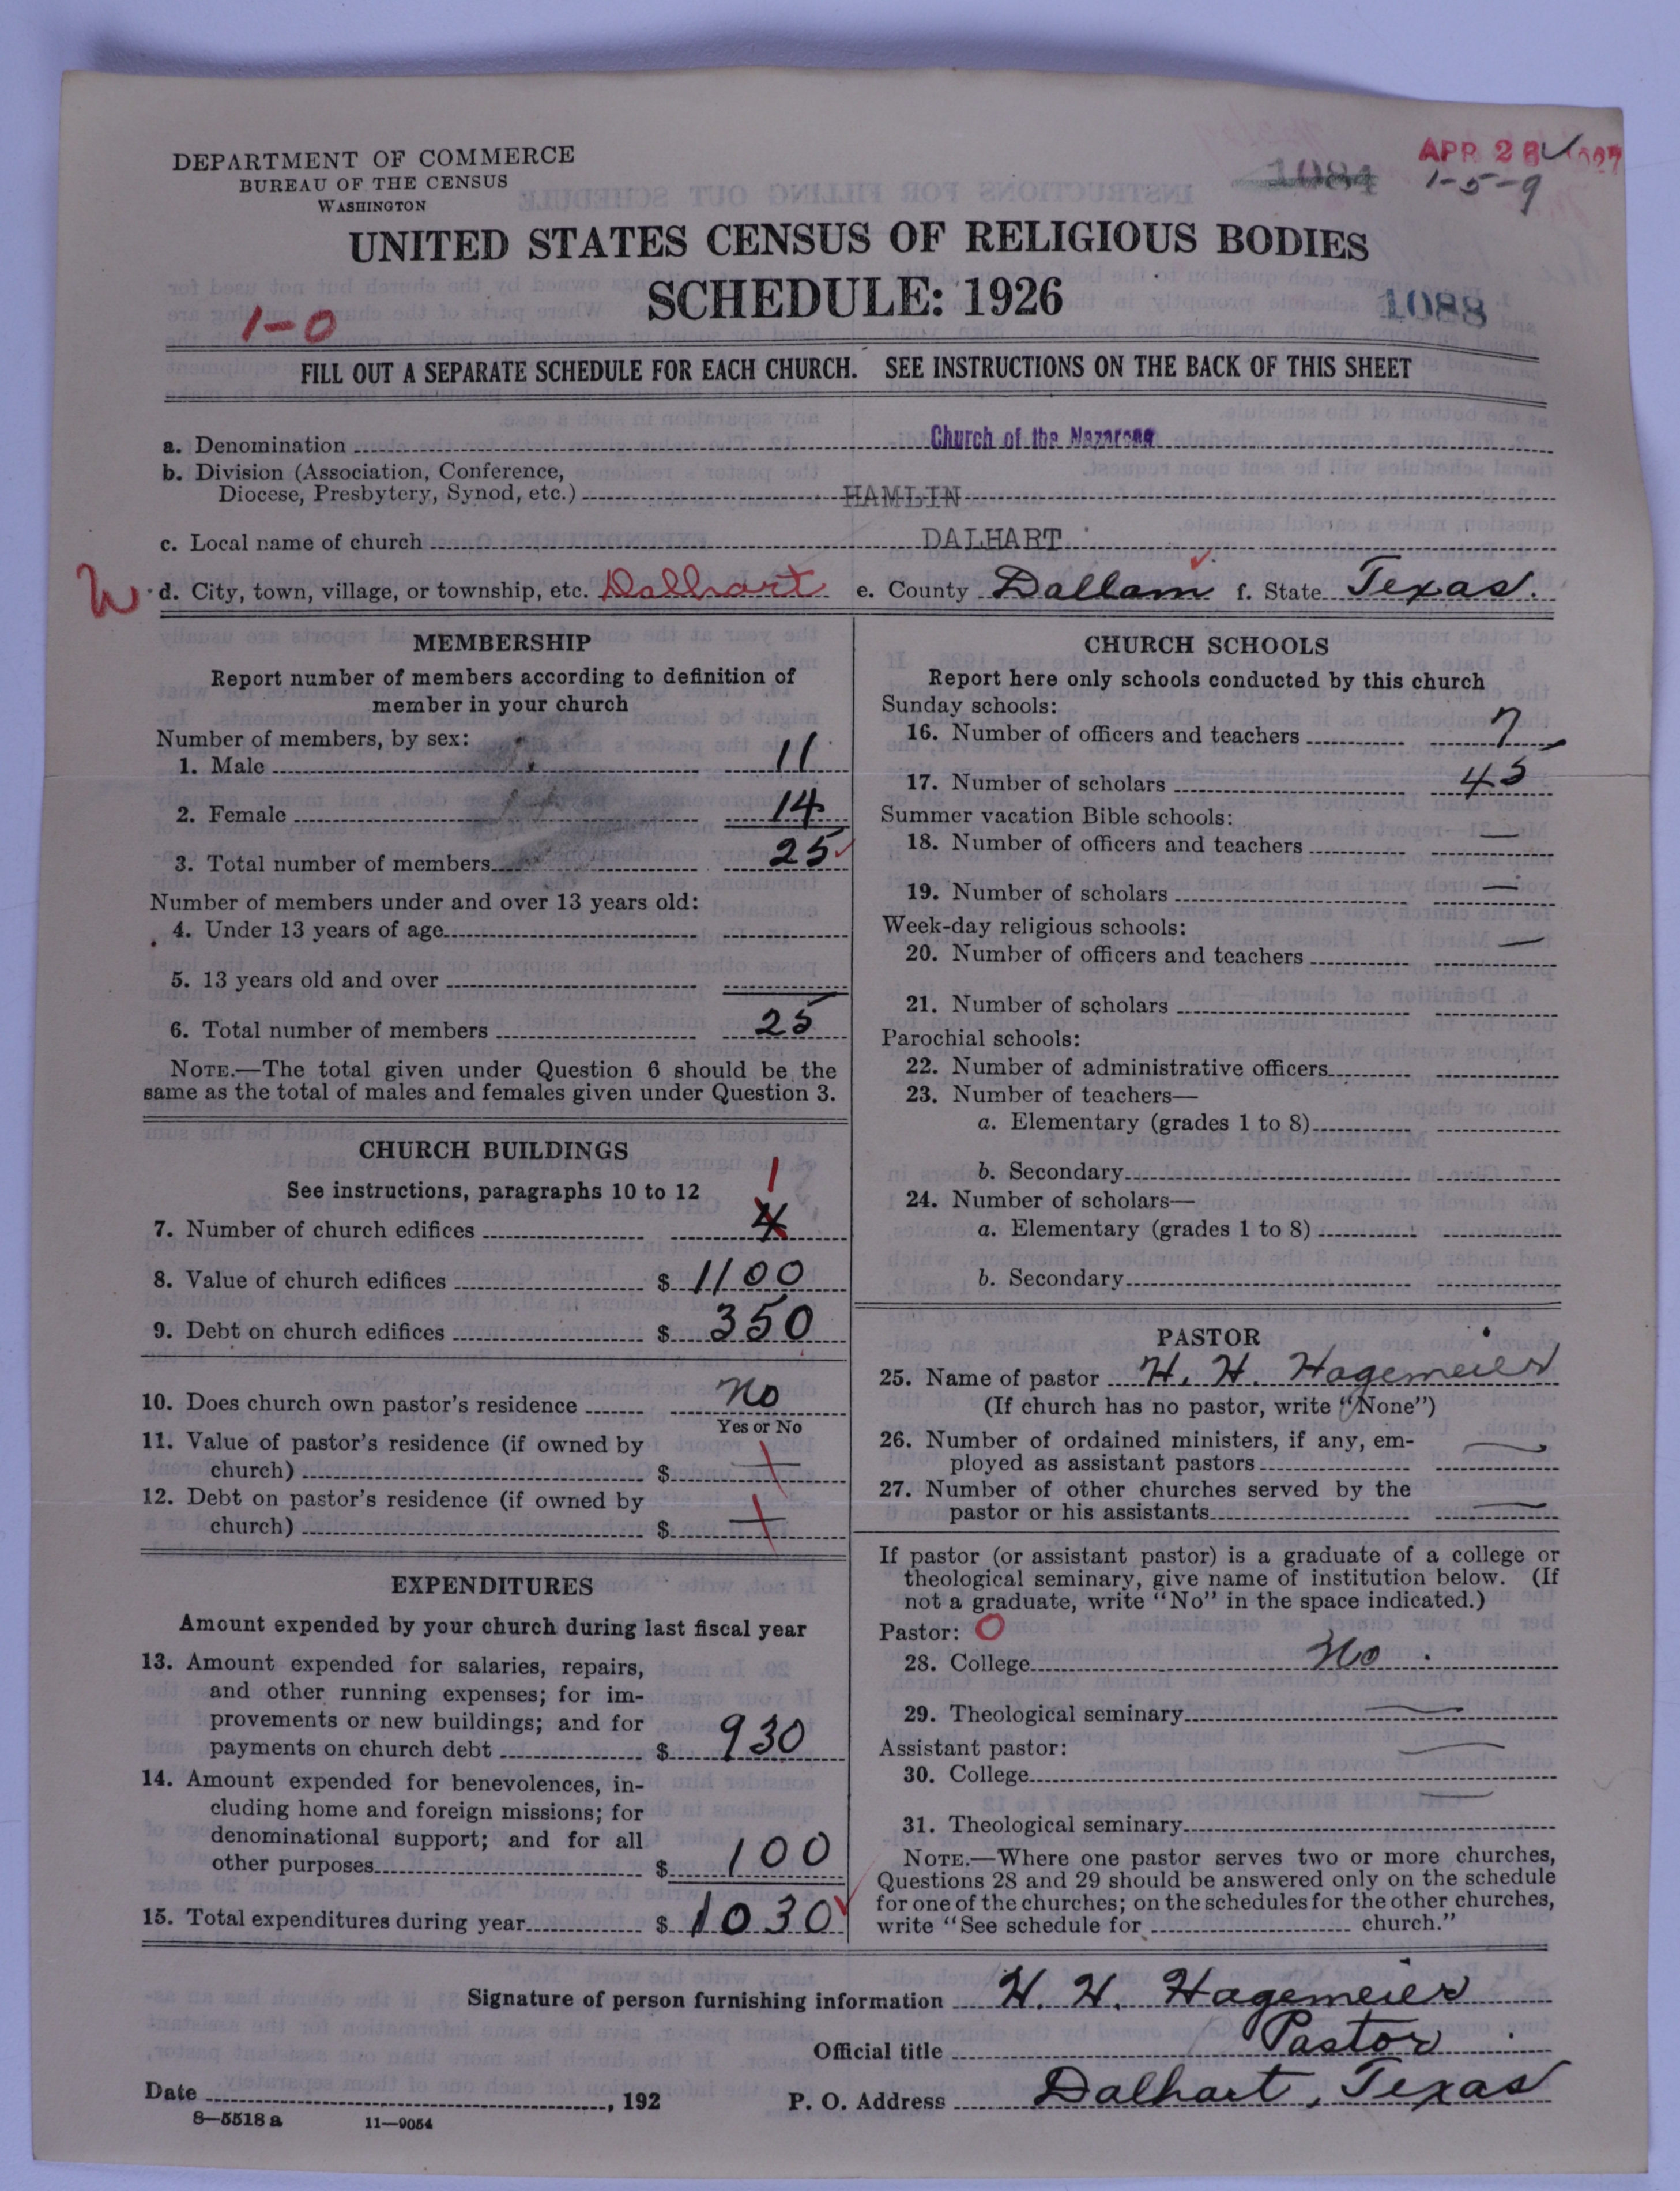 DEPARTMENT OF COMMERCE
BUREAU OF THE CENSUS
WASHINGTON
1084
APR 28 1927
1-5-9
UNITED STATES CENSUS OF RELIGIOUS BODIES
SCHEDULE: 1926
1-0
1088
FILL OUT A SEPARATE SCHEDULE FOR EACH CHURCH. SEE INSTRUCTIONS ON THE BACK OF THIS SHEET
a. Denomination Church of the Nazarene
b. Division (Association, Conference,
Diocese, Presbytery, Synod, etc.) HAMLIN
c. Local name of church DALHART
d. City, town, village, or township, etc. Dalhart e. County Dallam f. State Texas.
MEMBERSHIP
Report number of members according to definition of
member in your church
Number of members, by sex:
1. Male 11
2. Female 14
3. Total number of members 25
Number of members under and over 13 years old:
4. Under 13 years of age
5. 13 years old and over
6. Total number of members 25
NOTE.—The total given under Question 6 should be the
same as the total of males and females given under Question 3.
CHURCH BUILDINGS
See instructions, paragraphs 10 to 12
1
7. Number of church edifices
8. Value of church edifices $ 1100
9. Debt on church edifices $ 350
10. Does church own pastor's residence No
Yes or No
11. Value of pastor's residence (if owned by
church) $
12. Debt on pastor's residence (if owned by
church) $
EXPENDITURES
Amount expended by your church during last fiscal year
13. Amount expended for salaries, repairs,
and other running expenses; for im-
provements or new buildings; and for
payments on church debt $ 930
14. Amount expended for benevolences, in-
cluding home and foreign missions; for
denominational support; and for all
other purposes $ 100
15. Total expenditures during year $ 1030
CHURCH SCHOOLS
Report here only schools conducted by this church
Sunday schools:
16. Number of officers and teachers 7
17. Number of scholars 45
Summer vacation Bible schools:
18. Number of officers and teachers —
19. Number of scholars —
Week-day religious schools:
20. Number of officers and teachers —
21. Number of scholars
Parochial schools:
22. Number of administrative officers
23. Number of teachers—
a. Elementary (grades 1 to 8)
b. Secondary
24. Number of scholars—
a. Elementary (grades 1 to 8)
b. Secondary
PASTOR
25. Name of pastor H. H. Hagemeier
(If church has no pastor, write "None")
26. Number of ordained ministers, if any, em-
ployed as assistant pastors —
27. Number of other churches served by the
pastor or his assistants —
If pastor (or assistant pastor) is a graduate of a college or
theological seminary, give name of institution below. (If
not a graduate, write "No" in the space indicated.)
Pastor: O
28. College No
29. Theological seminary —
Assistant pastor:
30. College —
31. Theological seminary —
NOTE.—Where one pastor serves two or more churches,
Questions 28 and 29 should be answered only on the schedule
for one of the churches; on the schedules for the other churches,
write "See schedule for church."
Signature of person furnishing information H. H. Hagemeier
Official title Pastor
Date , 192 P. O. Address Dalhart, Texas
8—5518 a 11—9054